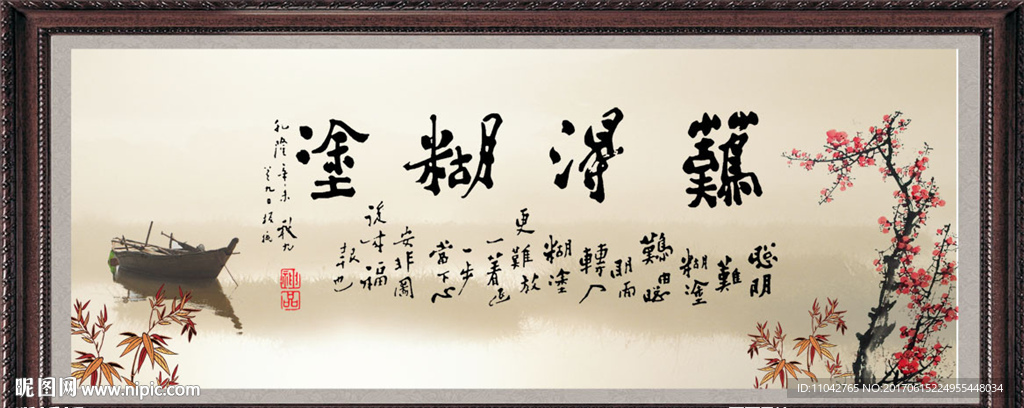 難得糊塗
聰明
難
糊塗
難由聰
明而
轉入
糊塗
更難
放
一着退
一步
當下心
安非圖
後來福
報也
乾隆辛未秋九
九日板橋
昵图网 www.nipic.com
ID:11042765 NO:20170615224955448034